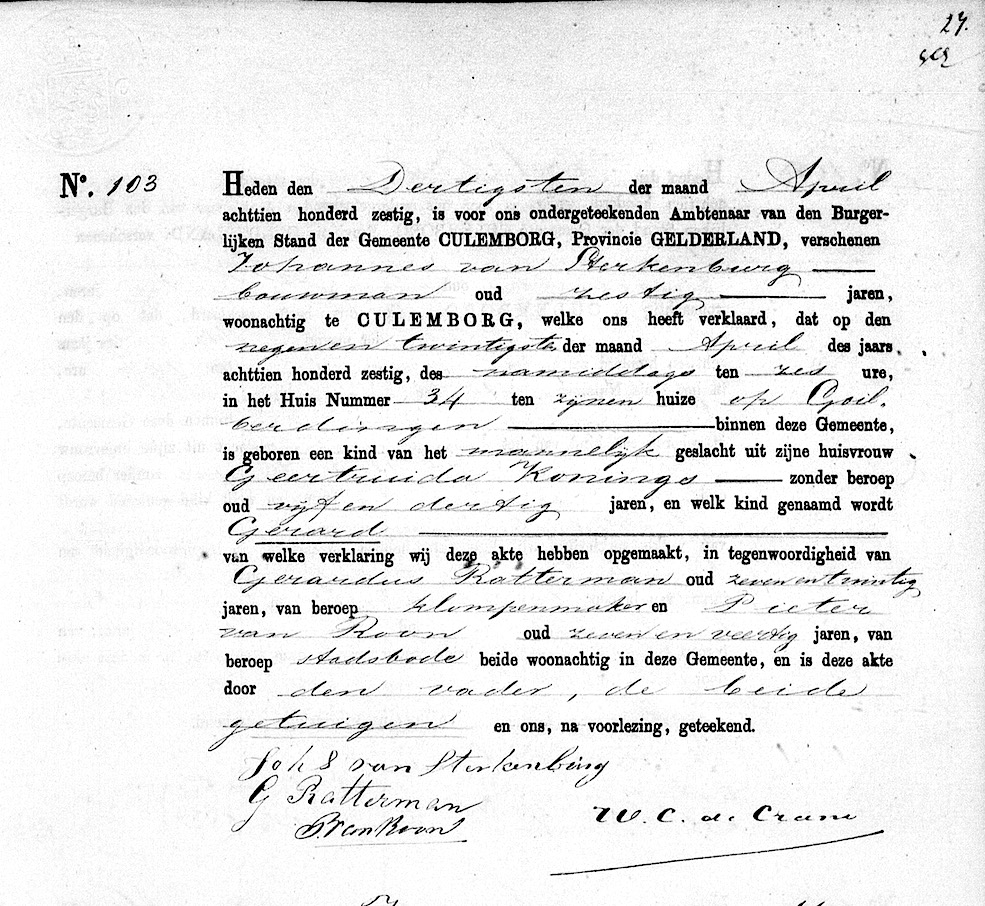 27.
No. 103
Heden den Dertigsten der maand April
achttien honderd zestig, is voor ons ondergeteekenden Ambtenaar van den Burger-
lijken Stand der Gemeente CULEMBORG, Provincie GELDERLAND, verschenen
Johannes van Sterkenburg
bouwman oud zestig jaren,
woonachtig te CULEMBORG, welke ons heeft verklaard, dat op den
negenen twintigste der maand April des jaars
achttien honderd zestig, des namiddags ten zes ure,
in het Huis Nummer 34 ten zijnen huize op Goil.
berdingen binnen deze Gemeente,
is geboren een kind van het mannelijk geslacht uit zijne huisvrouw
Geertruida Konings zonder beroep
oud vijf en dertig jaren, en welk kind genaamd wordt
Gerard
van welke verklaring wij deze akte hebben opgemaakt, in tegenwoordigheid van
Gerardus Ratterman oud zeven en twintig
jaren, van beroep klompenmaker en Pieter
van Roon oud zeven en veertig jaren, van
beroep stadsbode beide woonachtig in deze Gemeente, en is deze akte
door den vader, de beide
getuigen en ons, na voorlezing, geteekend.
Joh s van Sterkenburg
G Ratterman
P. van Roon
W. C. de Crane